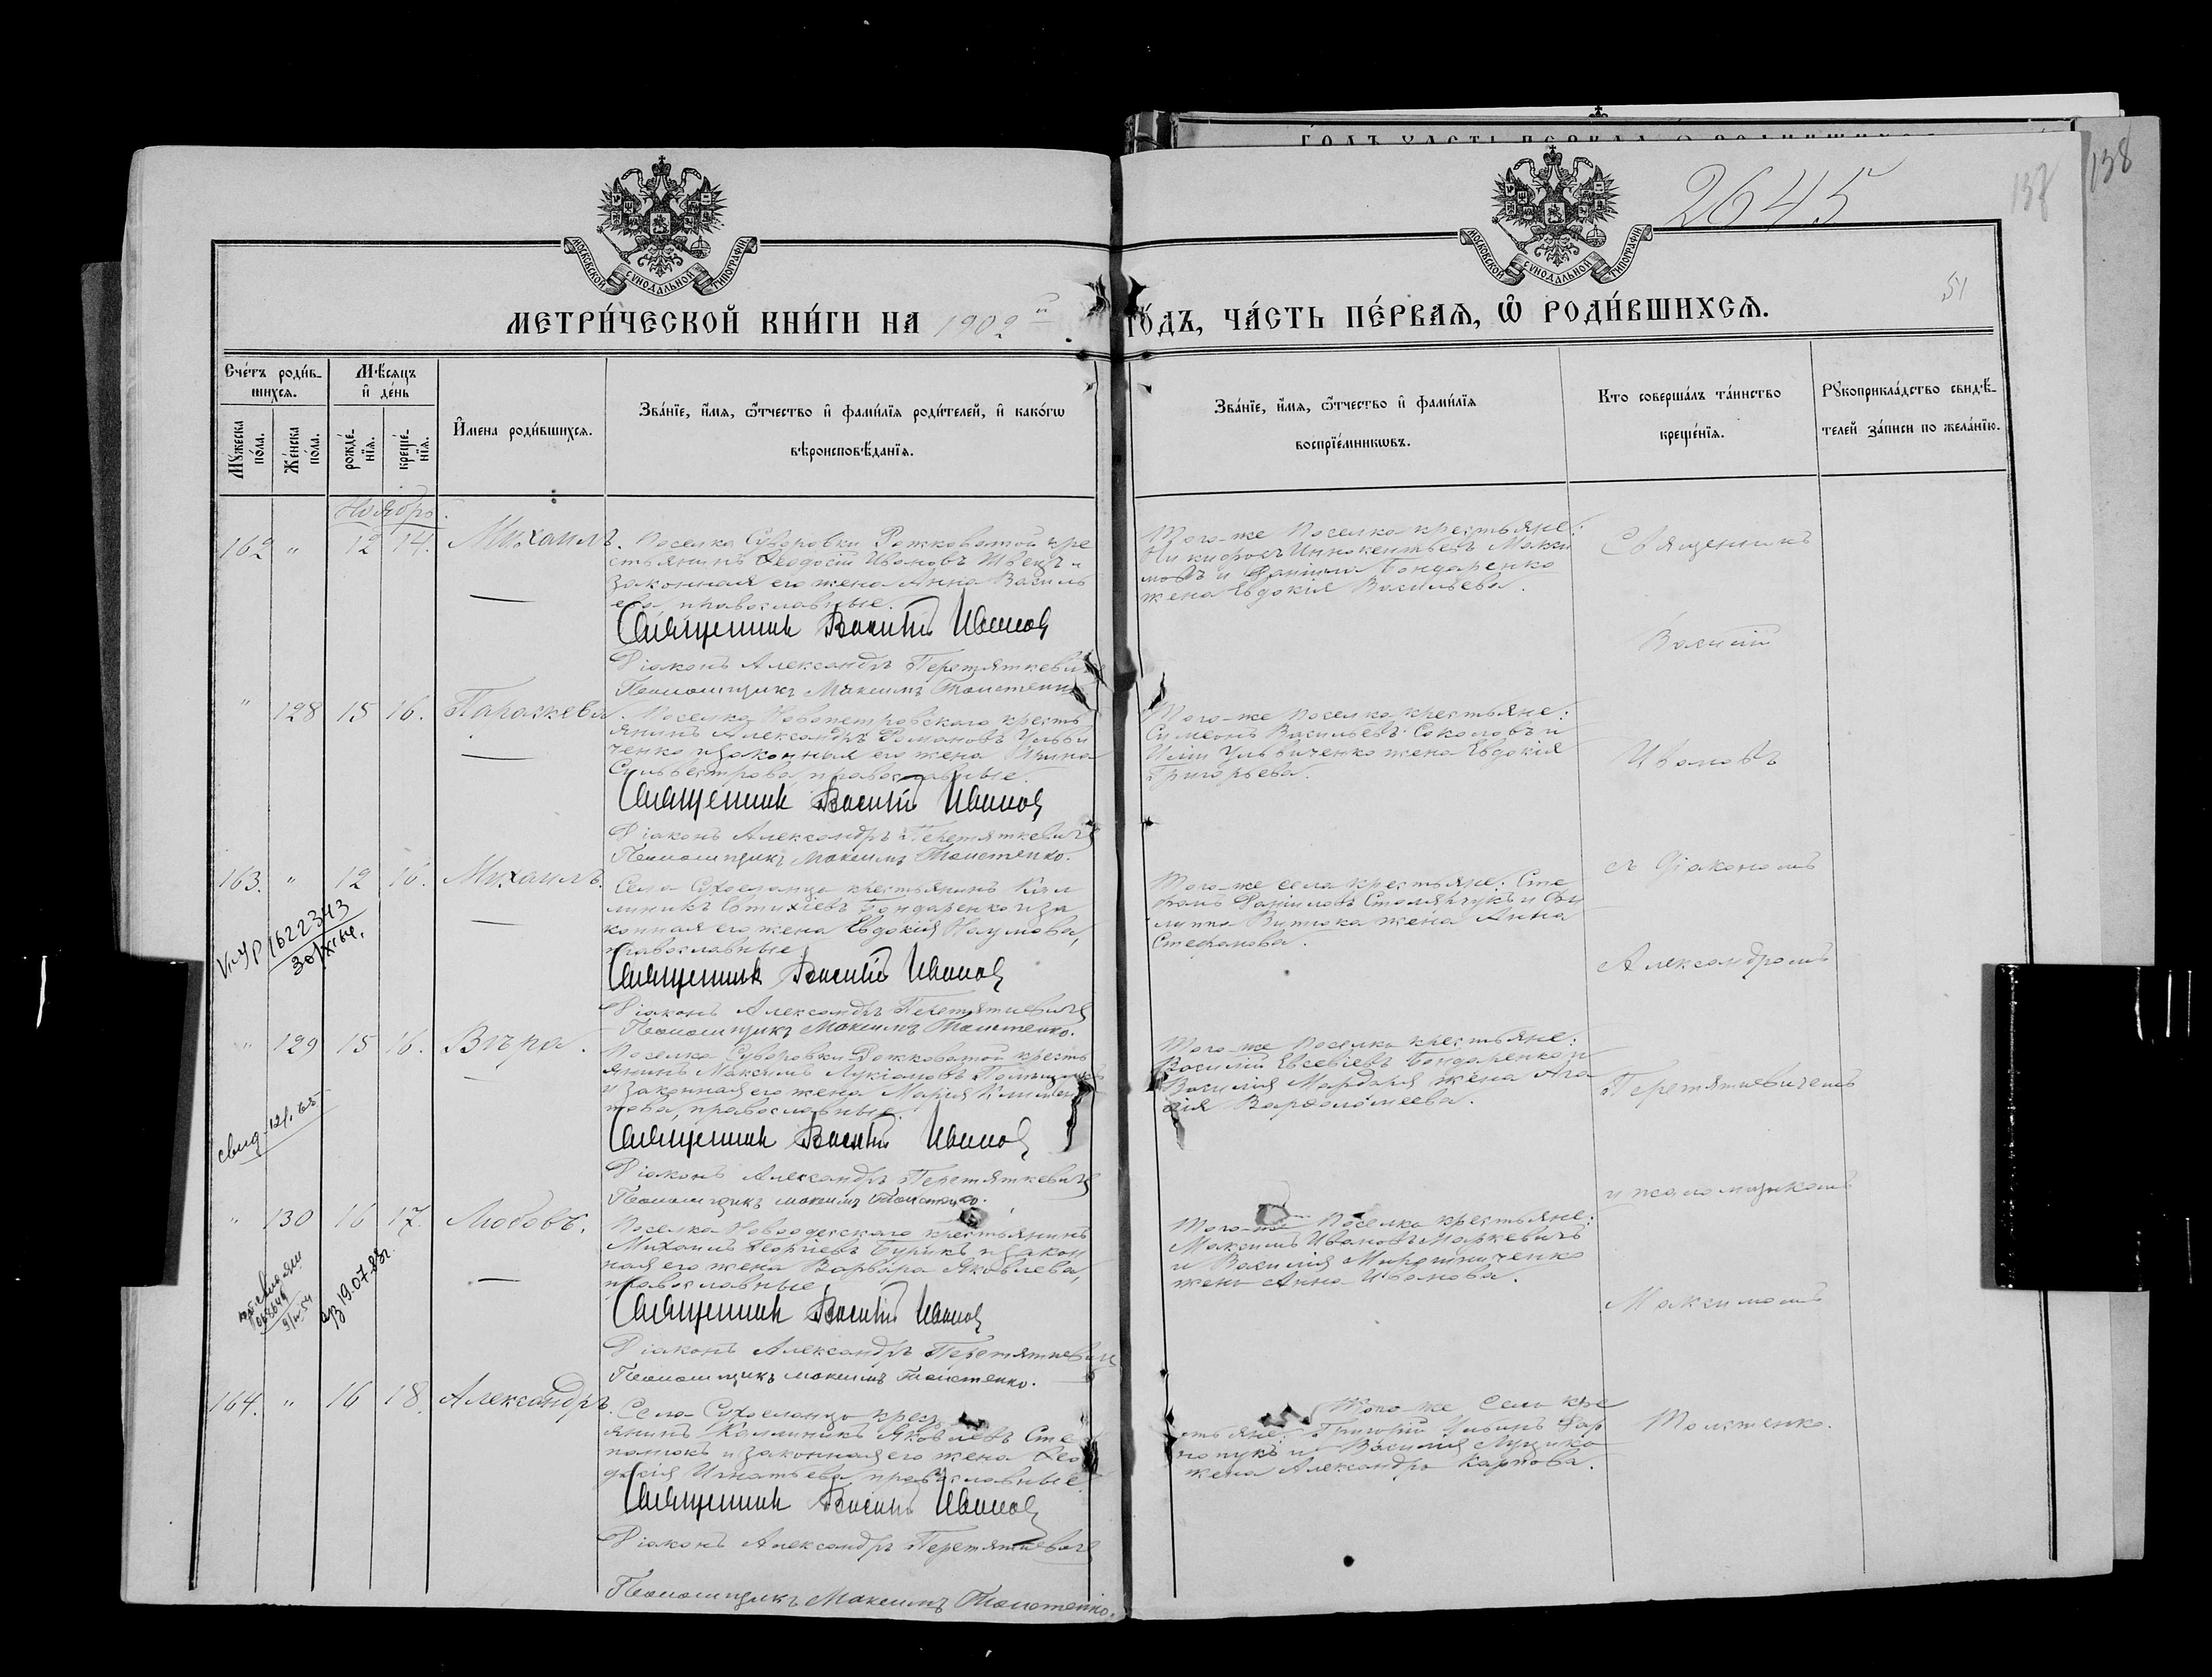 2645
138
138
51
МОСКОВСКОЙ СѴНОДАЛЬНОЙ ТИПОГРАФІИ
МОСКОВСКОЙ СѴНОДАЛЬНОЙ ТИПОГРАФІИ
МЕТРИ́ЧЕСКОЙ КНИ́ГИ НА 1902й
ГО́ДЪ, ЧА́СТЬ ПЕ́РВАѦ, Ѽ РОДИ́ВШИХСѦ.
Сче́тъ роди́в-
шихсѧ.
Мѣ́сяцъ
и҆ де́нь
Мꙋ́жеска
по́ла.
Же́нска
по́ла.
рожде́-
нїѧ.
креще́-
нїѧ.
И҆мена роди́вшихсѧ.
Зва́нїе, и҆́мѧ, ѻ҆́тчество и҆ фами́лїѧ роди́телей, и҆ како́гѡ
вѣроисповѣ́данїѧ.
Зва́нїе, и҆́мѧ, ѻ҆́тчество и҆ фами́лїѧ
воспрїе́мникѡвъ.
Кто̀ соверша́лъ та́инство
креще́нїѧ.
Рꙋкоприкла́дство свидѣ́-
телей за́писи по жела́нїю.
Ноябрь.
162 " 12 14. Михаилъ.
Поселка Суворовки Рожковатой кре
стьянинъ Ѳеодосій Ивановъ Швецъ и
законная его жена Анна Василь
ева, православные.
Священникъ Василій Ивановъ
Діаконъ Александръ Перетяткевичъ
Псаломщикъ Максимъ Толстенко
Того-же поселка крестьяне:
Никифоръ Иннокентьевъ Макси
мовъ и Даніила Бондаренко
жена Евдокія Васильева.
" 128 15 16. Параскева.
Поселка Новопетровскаго кресть
янинъ Александръ Романовъ Ульви
ченко и законная его жена Ирина
Сильвестрова, православные.
Священникъ Василій Ивановъ
Діаконъ Александръ Перетяткевичъ
Псаломщикъ Максимъ Толстенко.
Того-же поселка крестьяне:
Симеонъ Васильевъ Соколовъ и
Иліи Ульвиченко жена Евдокія
Григорьева.
163. " 12 16. Михаилъ.
Села Сухоеланца крестьянинъ Кал
линикъ Евтихіевъ Бондаренко и за
конная его жена Евдокія Наумова,
православные
Священникъ Василій Ивановъ
Діаконъ Александръ Перетяткевичъ
Псаломщикъ Максимъ Толстенко.
Того-же села крестьяне: Сте
фанъ Даніиловъ Столярчукъ и Фи
липпа жена Анна
Стефанова.
1622343
" 129 15 16. Вѣра.
Поселка Суворовки-Рожковатой кресть
янинъ Максимъ Лукіановъ
и законная его жена Марія Климен
това, православные.
Священникъ Василій Ивановъ
Діаконъ Александръ Перетяткевичъ
Псаломщикъ Максимъ Толстенко.
Того-же поселка крестьяне:
Василій Евсевіевъ Бондаренко и
Василія Мардаря жена Ага
ѳія Варѳоломеева.
свид 121.65
" 130 16 17. Любовь.
Поселка Новоодесскаго крестьянинъ
Михаилъ Георгіевъ Бурикъ и закон
ная его жена Варвара Яковлева,
православные
Священникъ Василій Ивановъ
Діаконъ Александръ Перетяткевичъ
Псаломщикъ Максимъ Толстенко.
Того-же поселка крестьяне:
Максимъ Ивановъ Маркевичъ
и Василія Мирошниченко
жена Анна Иванова.
19.07.88г.
164. " 16 18. Александръ.
Села Сухоеланца крест
янинъ Каллиникъ Яковлевъ Сте
панюкъ и законная его жена Ѳео
досія Игнатьева, православные.
Священникъ Василій Ивановъ
Діаконъ Александръ Перетяткевичъ
Псаломщикъ Максимъ Толстенко.
Того-же села кре
стьяне: Григорій Ильинъ
и Василія Луцика
жена Александра Карпова.
Священникъ
Василій
Ивановъ
съ Діакономъ
Александромъ
Перетяткевичемъ
и псаломщикомъ
Максимомъ
Толстенко.